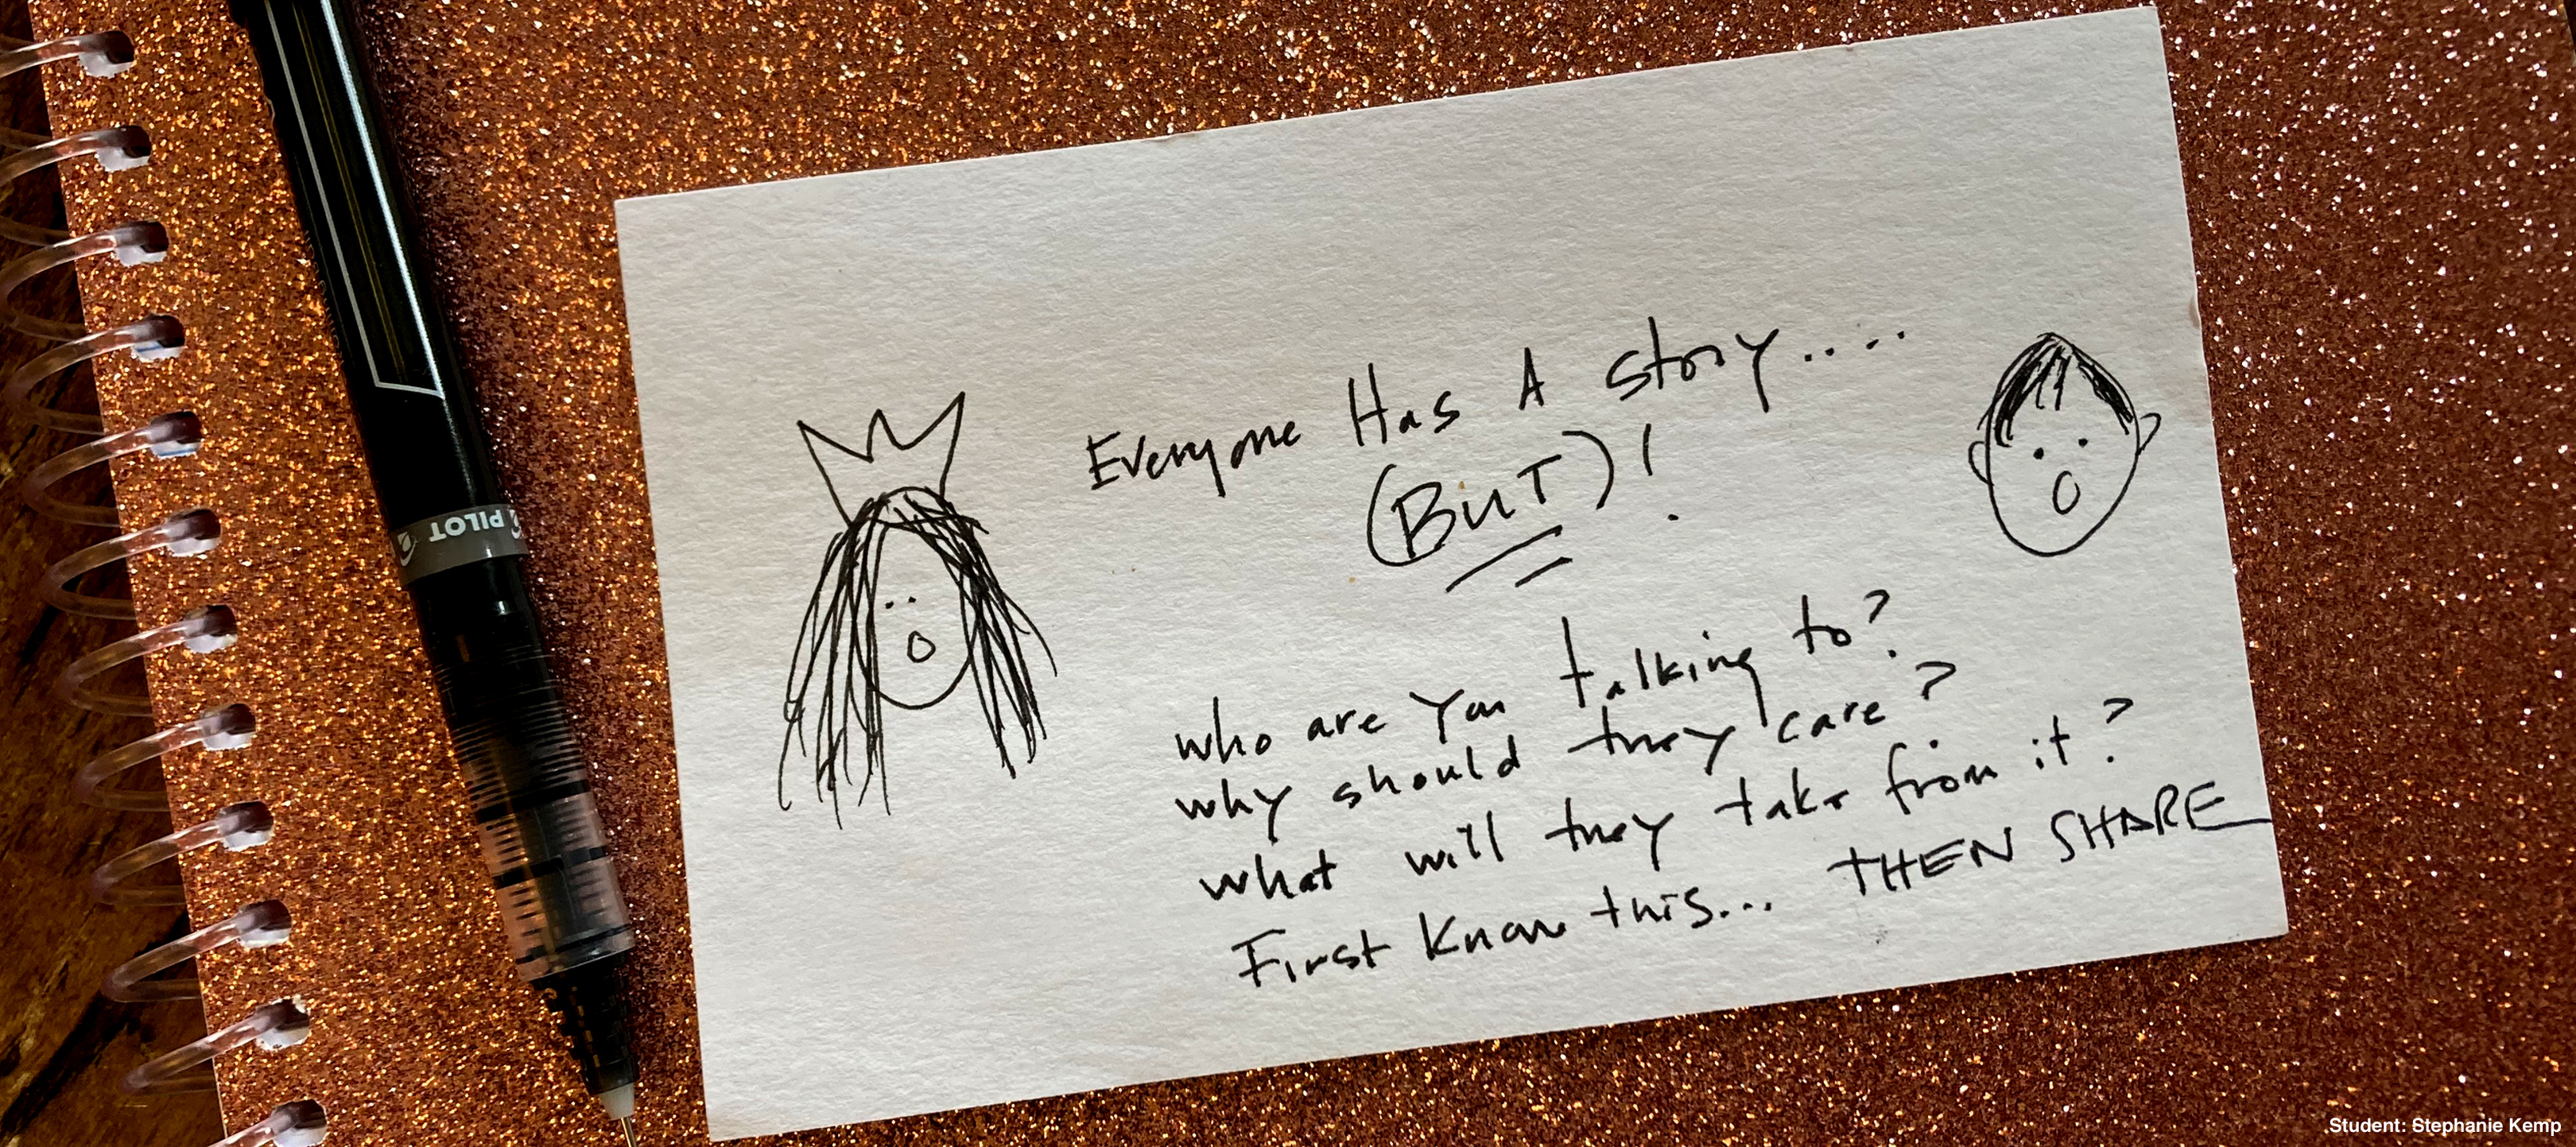 PILOT
Everyone Has A story....
(BUT)!
who are you talking to?
why should they care?
what will they take from it?
First know this... THEN SHARE
Student: Stephanie Kemp